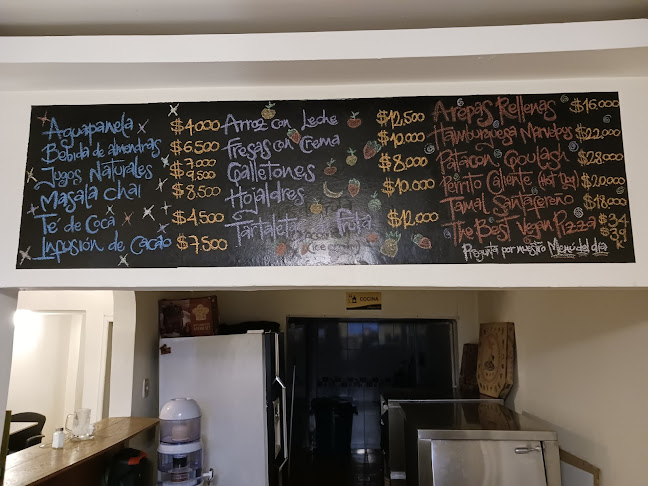 Aguapanela $4000
Bebida de almendras $6.500
Jugos Naturales $7.000 $9.500
Masala Chai $8.500
Te' de Coca $4500
Infusión de Cacao $7.500
Arroz con Leche $12,500
Fresas con Crema $10.000
Galletones $8.000
Hojaldres $10.000
Tartaletas de fruta $12.000
Arepas Rellenas $16.000
Hamburguesa $22.000
Patacón Goulash $28.000
Perrito Caliente (Hot Dog) $20.000
Tamal Santafereño $18.000
The Best Vegan Pizza $34 39 K
Pregunta por nuestro Menú del día
COCINA